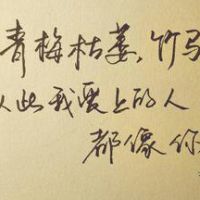 青梅枯萎,竹马
从此我爱上的人
都像你